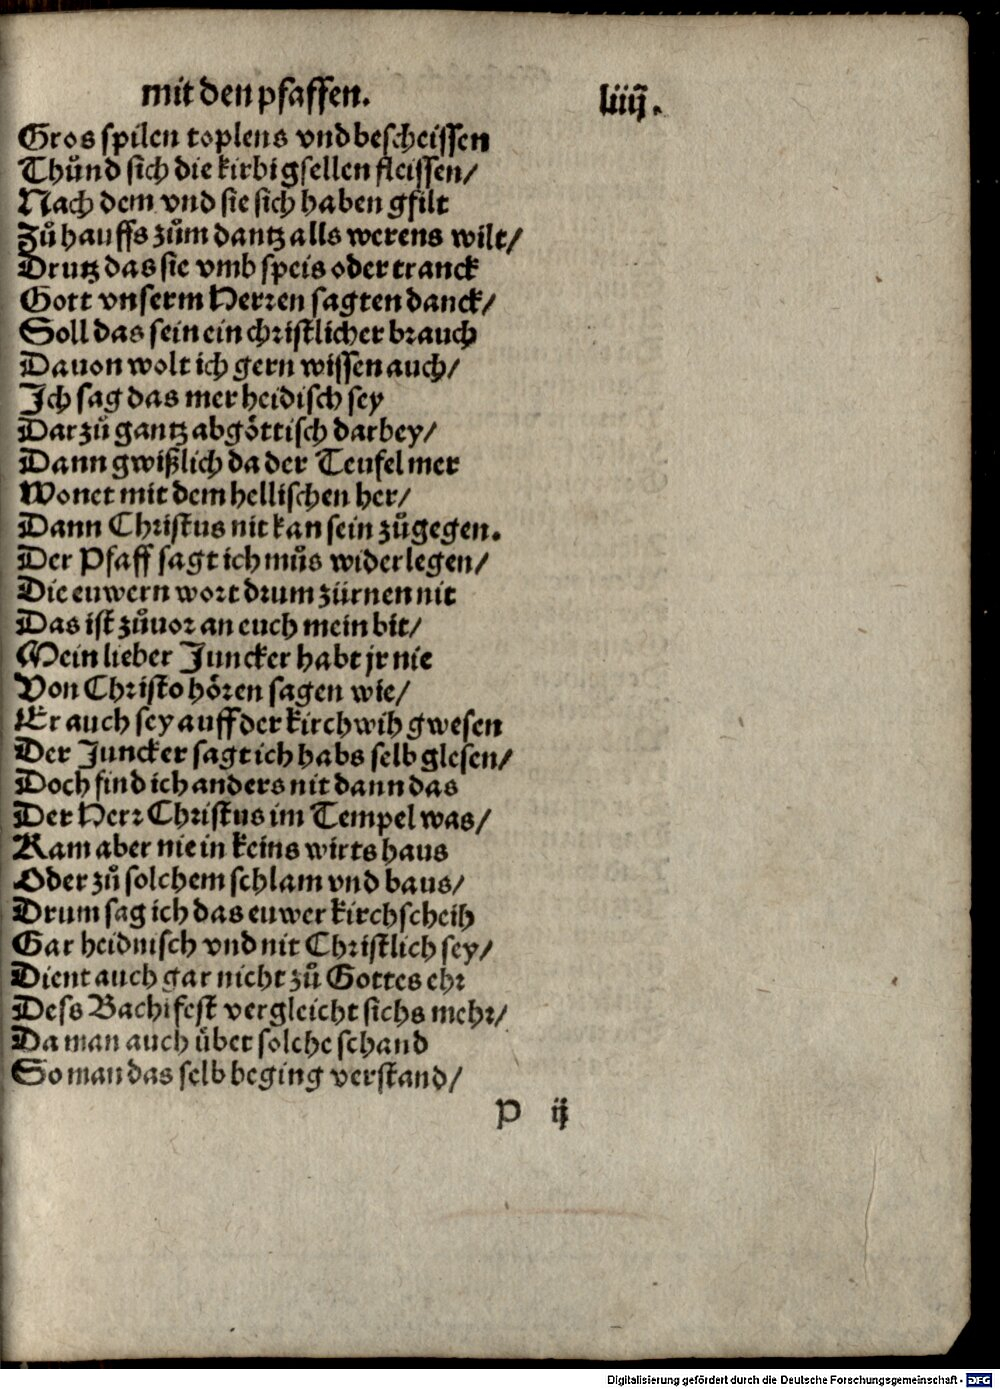 mit den pfaffen. liiij.
Gros spilen toplens vnd bescheissen
Thuͦnd sich die kirbigsellen fleissen/
Nach dem vnd sie sich haben gfilt
Zuͦ hauffs zuͦm dantz alls werens wilt/
Drutz das sie vmb speis oder tranck
Gott vnserm Herren sagten danck/
Soll das sein ein christlicher brauch
Dauon wolt ich gern wissen auch/
Ich sag das mer heidisch sey
Darzuͦ gantz abgoͤttisch darbey/
Dann gwißlich da der Teufel mer
Wonet mit dem hellischen her/
Dann Christus nit kan sein zuͦgegen.
Der Pfaff sagt ich muͦs widerlegen/
Die euwern wort drum zürnen nit
Das ist zuͦuor an euch mein bit/
Mein lieber Juncker habt jr nie
Von Christo hoͤren sagen wie/
Er auch sey auff der kirchwih gwesen
Der Juncker sagt ich habs selb glesen/
Doch find ich anders nit dann das
Der Herr Christus im Tempel was/
Kam aber nie in keins wirts haus
Oder zuͦ solchem schlam vnd baus/
Drum sag ich das euwer kirchscheih
Gar heidnisch vnd nit Christlich sey/
Dient auch gar nicht zuͦ Gottes ehr
Dess Bachifest vergleicht sichs mehr/
Da man auch über solche schand
So man das selb beging verstand/
P ij
Digitalisierung gefördert durch die Deutsche Forschungsgemeinschaft - DFG